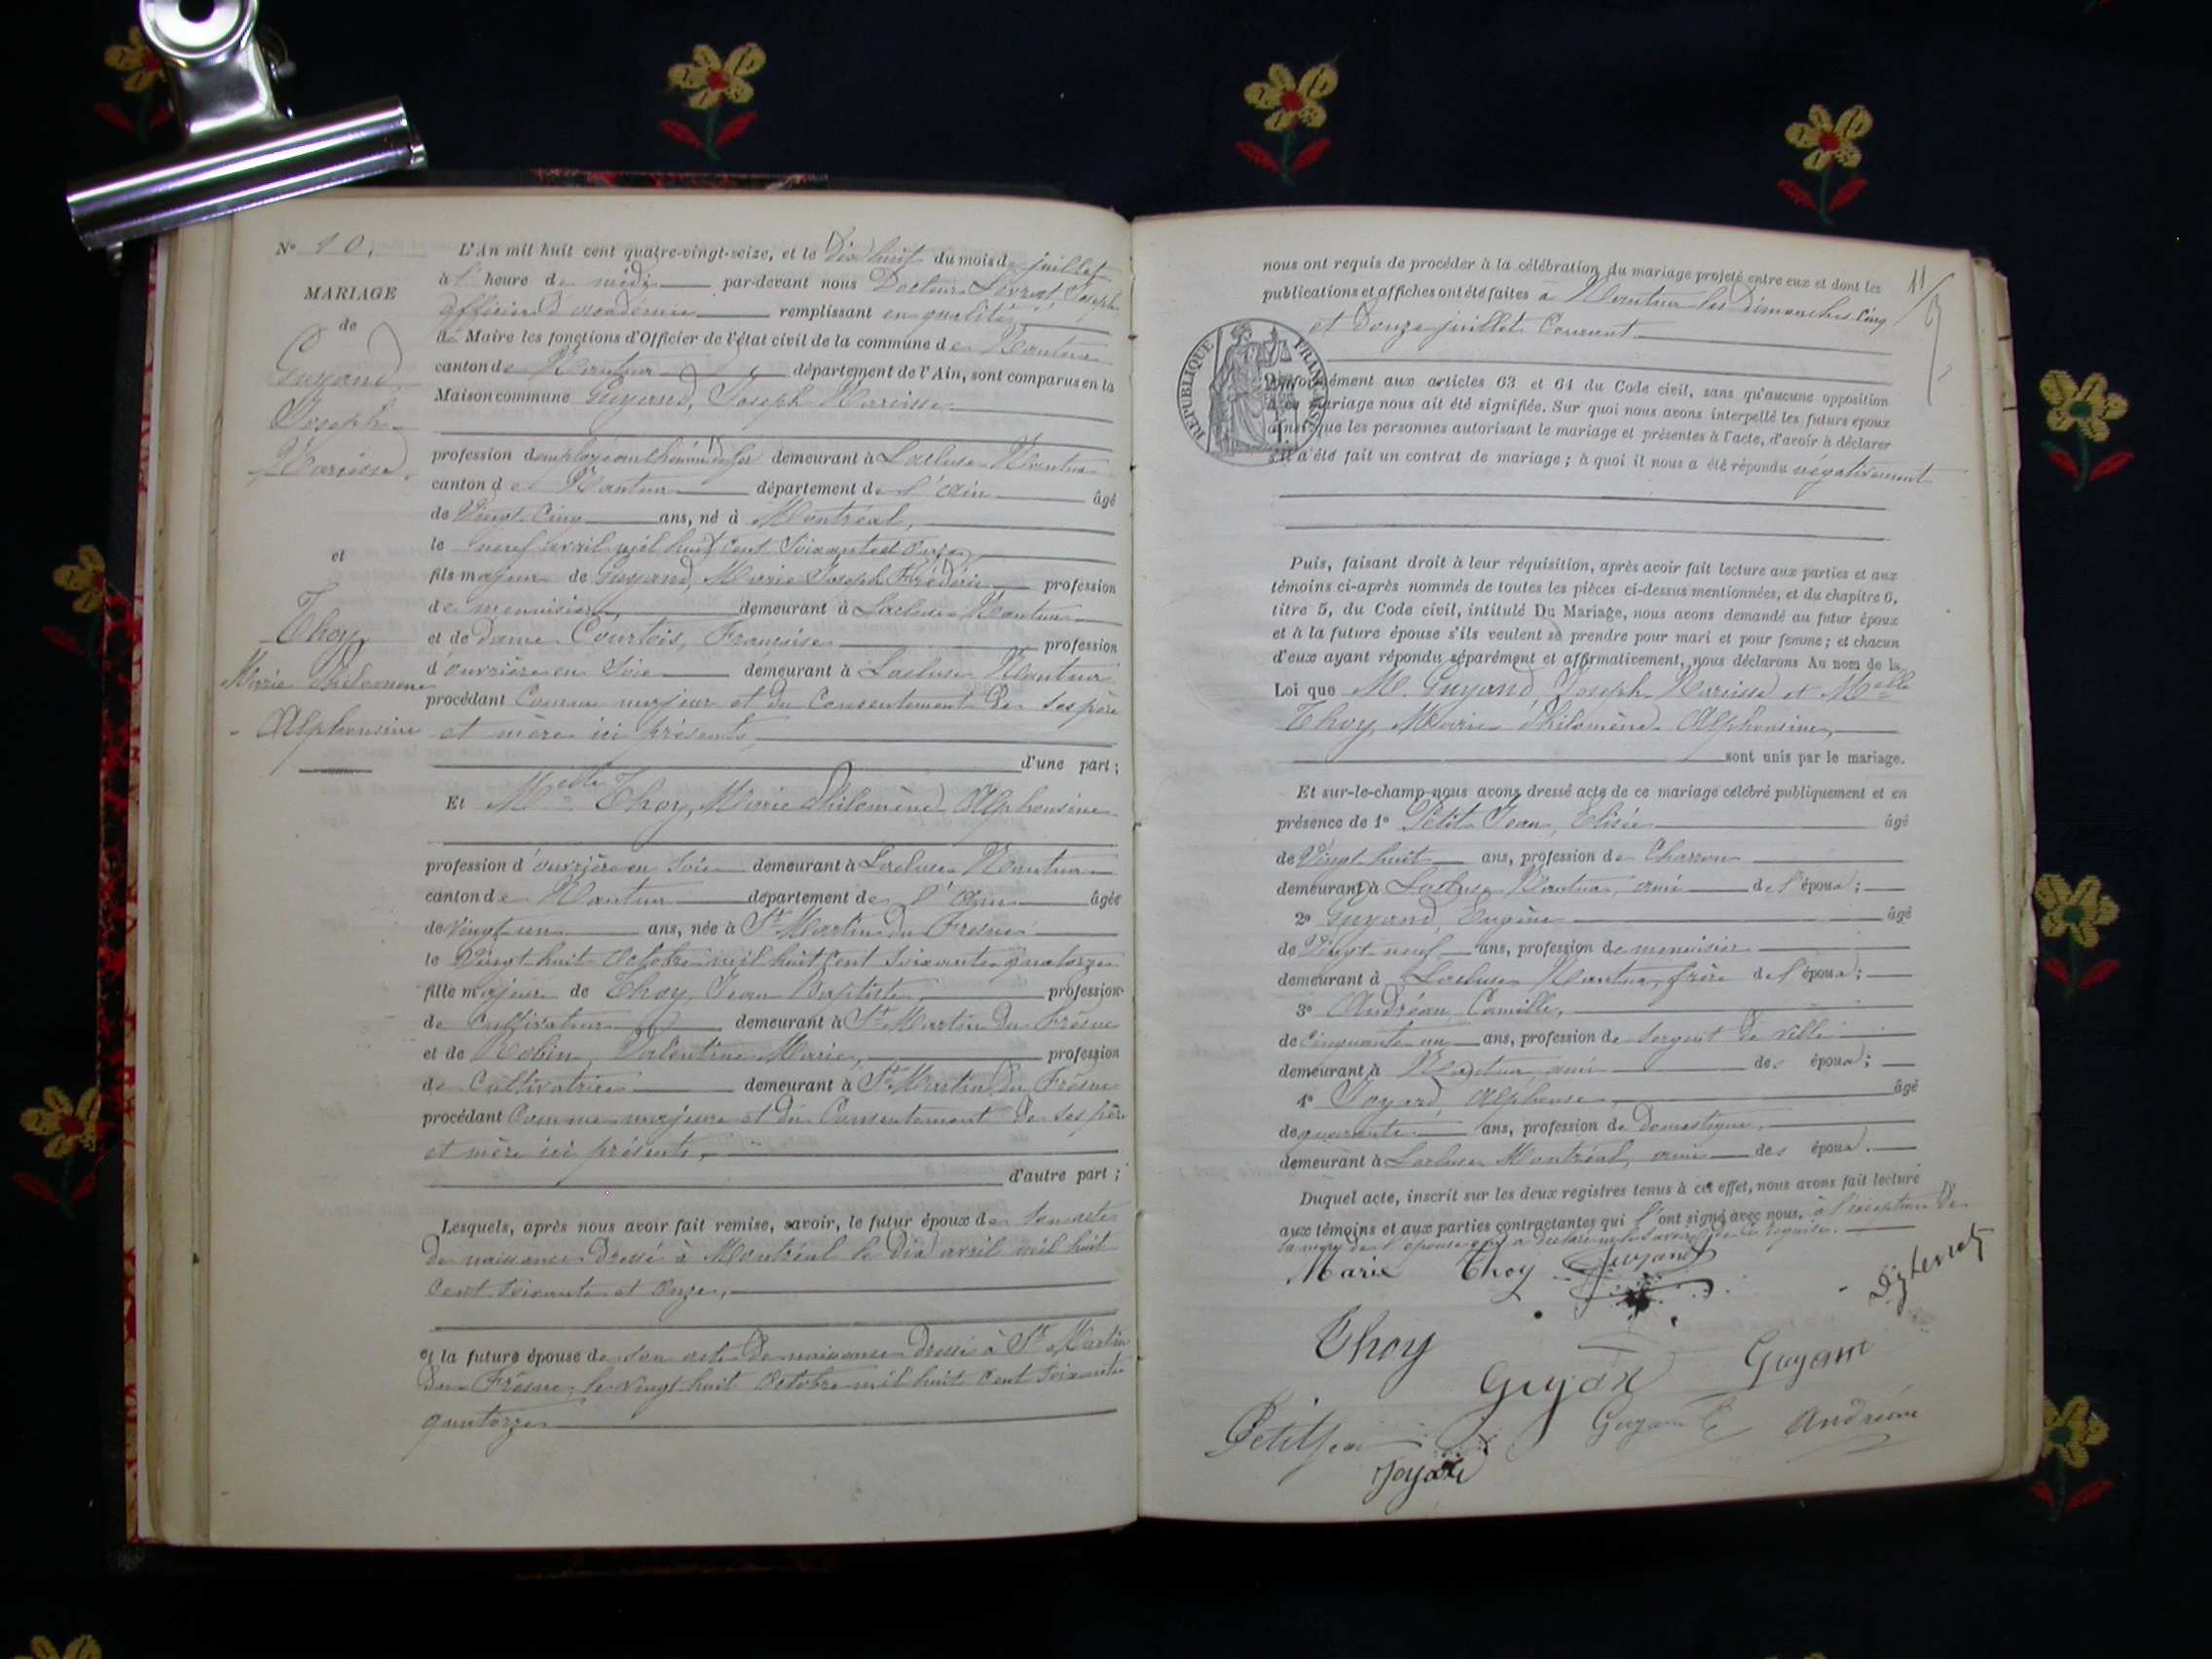 N° 10.
MARIAGE
de
Guyand
Joseph
Narcisse.
et
Thoy
Marie Philomène
Alphonsine
L'An mil huit cent quatre-vingt-seize, et le Dix huit du mois de juillet
à l' heure de midi par-devant nous Docteur Joseph
officier d'académie remplissant en qualité
de Maire les fonctions d'Officier de l'état civil de la commune de Nantua
canton de Nantua département de l'Ain, sont comparus en la
Maison commune Guyand, Joseph Narcisse
profession d'employé au chemin de fer demeurant à Lacluse Nantua
canton de Nantua département de l'Ain âgé
de Vingt Cinq ans, né à Montréal,
le neuf avril mil huit Cent Soixante et Onze,
fils majeur de Guyand, Marie Joseph Frédéric profession
de menuisier, demeurant à Lacluse Nantua
et de Dame Courtois, Françoise profession
d'ouvrière en Soie demeurant à Lacluse Nantua
procédant Comme majeur et du Consentement de ses père
et mère ici présents,
d'une part ;
Et Melle Thoy, Marie Philomène Alphonsine
profession d'ouvrière en Soie demeurant à Lacluse Nantua
canton de Nantua département de l'Ain âgée
de Vingt un ans, née à St Martin du Fresne
le Vingt huit Octobre mil huit Cent Soixante quatorze
fille majeure de Thoy, Jean Baptiste, profession
de Cultivateur demeurant à St Martin du Frêsne
et de Robin, Valentine Marie, profession
de Cultivatrice demeurant à St Martin du Frêsne
procédant Comme majeure et du Consentement de ses père
et mère ici présents,
d'autre part ;
Lesquels, après nous avoir fait remise, savoir, le futur époux de Son acte
de naissance Dressé à Montréal le Dix avril mil huit
Cent Soixante et Onze,
et la future épouse de Son acte de naissance dressé à St Martin
du Frêsne, le vingt huit Octobre mil huit Cent Soixante
quatorze
11
nous ont requis de procéder à la célébration du mariage projeté entre eux et dont les
publications et affiches ont été faites à Nantua les Dimanches Cinq
et Douze juillet Courant
RÉPUBLIQUE FRANÇAISE
Conformément aux articles 63 et 64 du Code civil, sans qu'aucune opposition
à ce mariage nous ait été signifiée. Sur quoi nous avons interpellé les futurs époux
ainsi que les personnes autorisant le mariage et présentes à l'acte, d'avoir à déclarer
s'il a été fait un contrat de mariage ; à quoi il nous a été répondu négativement
Puis, faisant droit à leur réquisition, après avoir fait lecture aux parties et aux
témoins ci-après nommés de toutes les pièces ci-dessus mentionnées, et du chapitre 6,
titre 5, du Code civil, intitulé Du Mariage, nous avons demandé au futur époux
et à la future épouse s'ils veulent se prendre pour mari et pour femme ; et chacun
d'eux ayant répondu séparément et affirmativement, nous déclarons Au nom de la
Loi que M. Guyand Joseph Narcisse et Melle
Thoy Marie Philomène Alphonsine,
sont unis par le mariage.
Et sur-le-champ nous avons dressé acte de ce mariage célébré publiquement et en
présence de 1° Petit Jean, Elisée âgé
de Vingt huit ans, profession de Charron
demeurant à Lacluse Nantua, ami de l'époux ;
2° Guyand, Eugène âgé
de Vingt neuf ans, profession de menuisier
demeurant à Lacluse Nantua, frère de l'époux ;
3° Andréan, Camille,
de Cinquante un ans, profession de Sergent de ville
demeurant à Nantua ami des époux ;
4° Joyard, Alphonse, âgé
de quarante ans, profession de Domestique,
demeurant à Lacluse Montréal, ami des époux.
Duquel acte, inscrit sur les deux registres tenus à cet effet, nous avons fait lecture
aux témoins et aux parties contractantes qui l'ont signé avec nous, à l'exception de
la mère de l'épouse qui a déclaré ne le savoir de ce requise.
Marie Thoy Guyand
Thoy
Petitjean
Andréan
Joyard